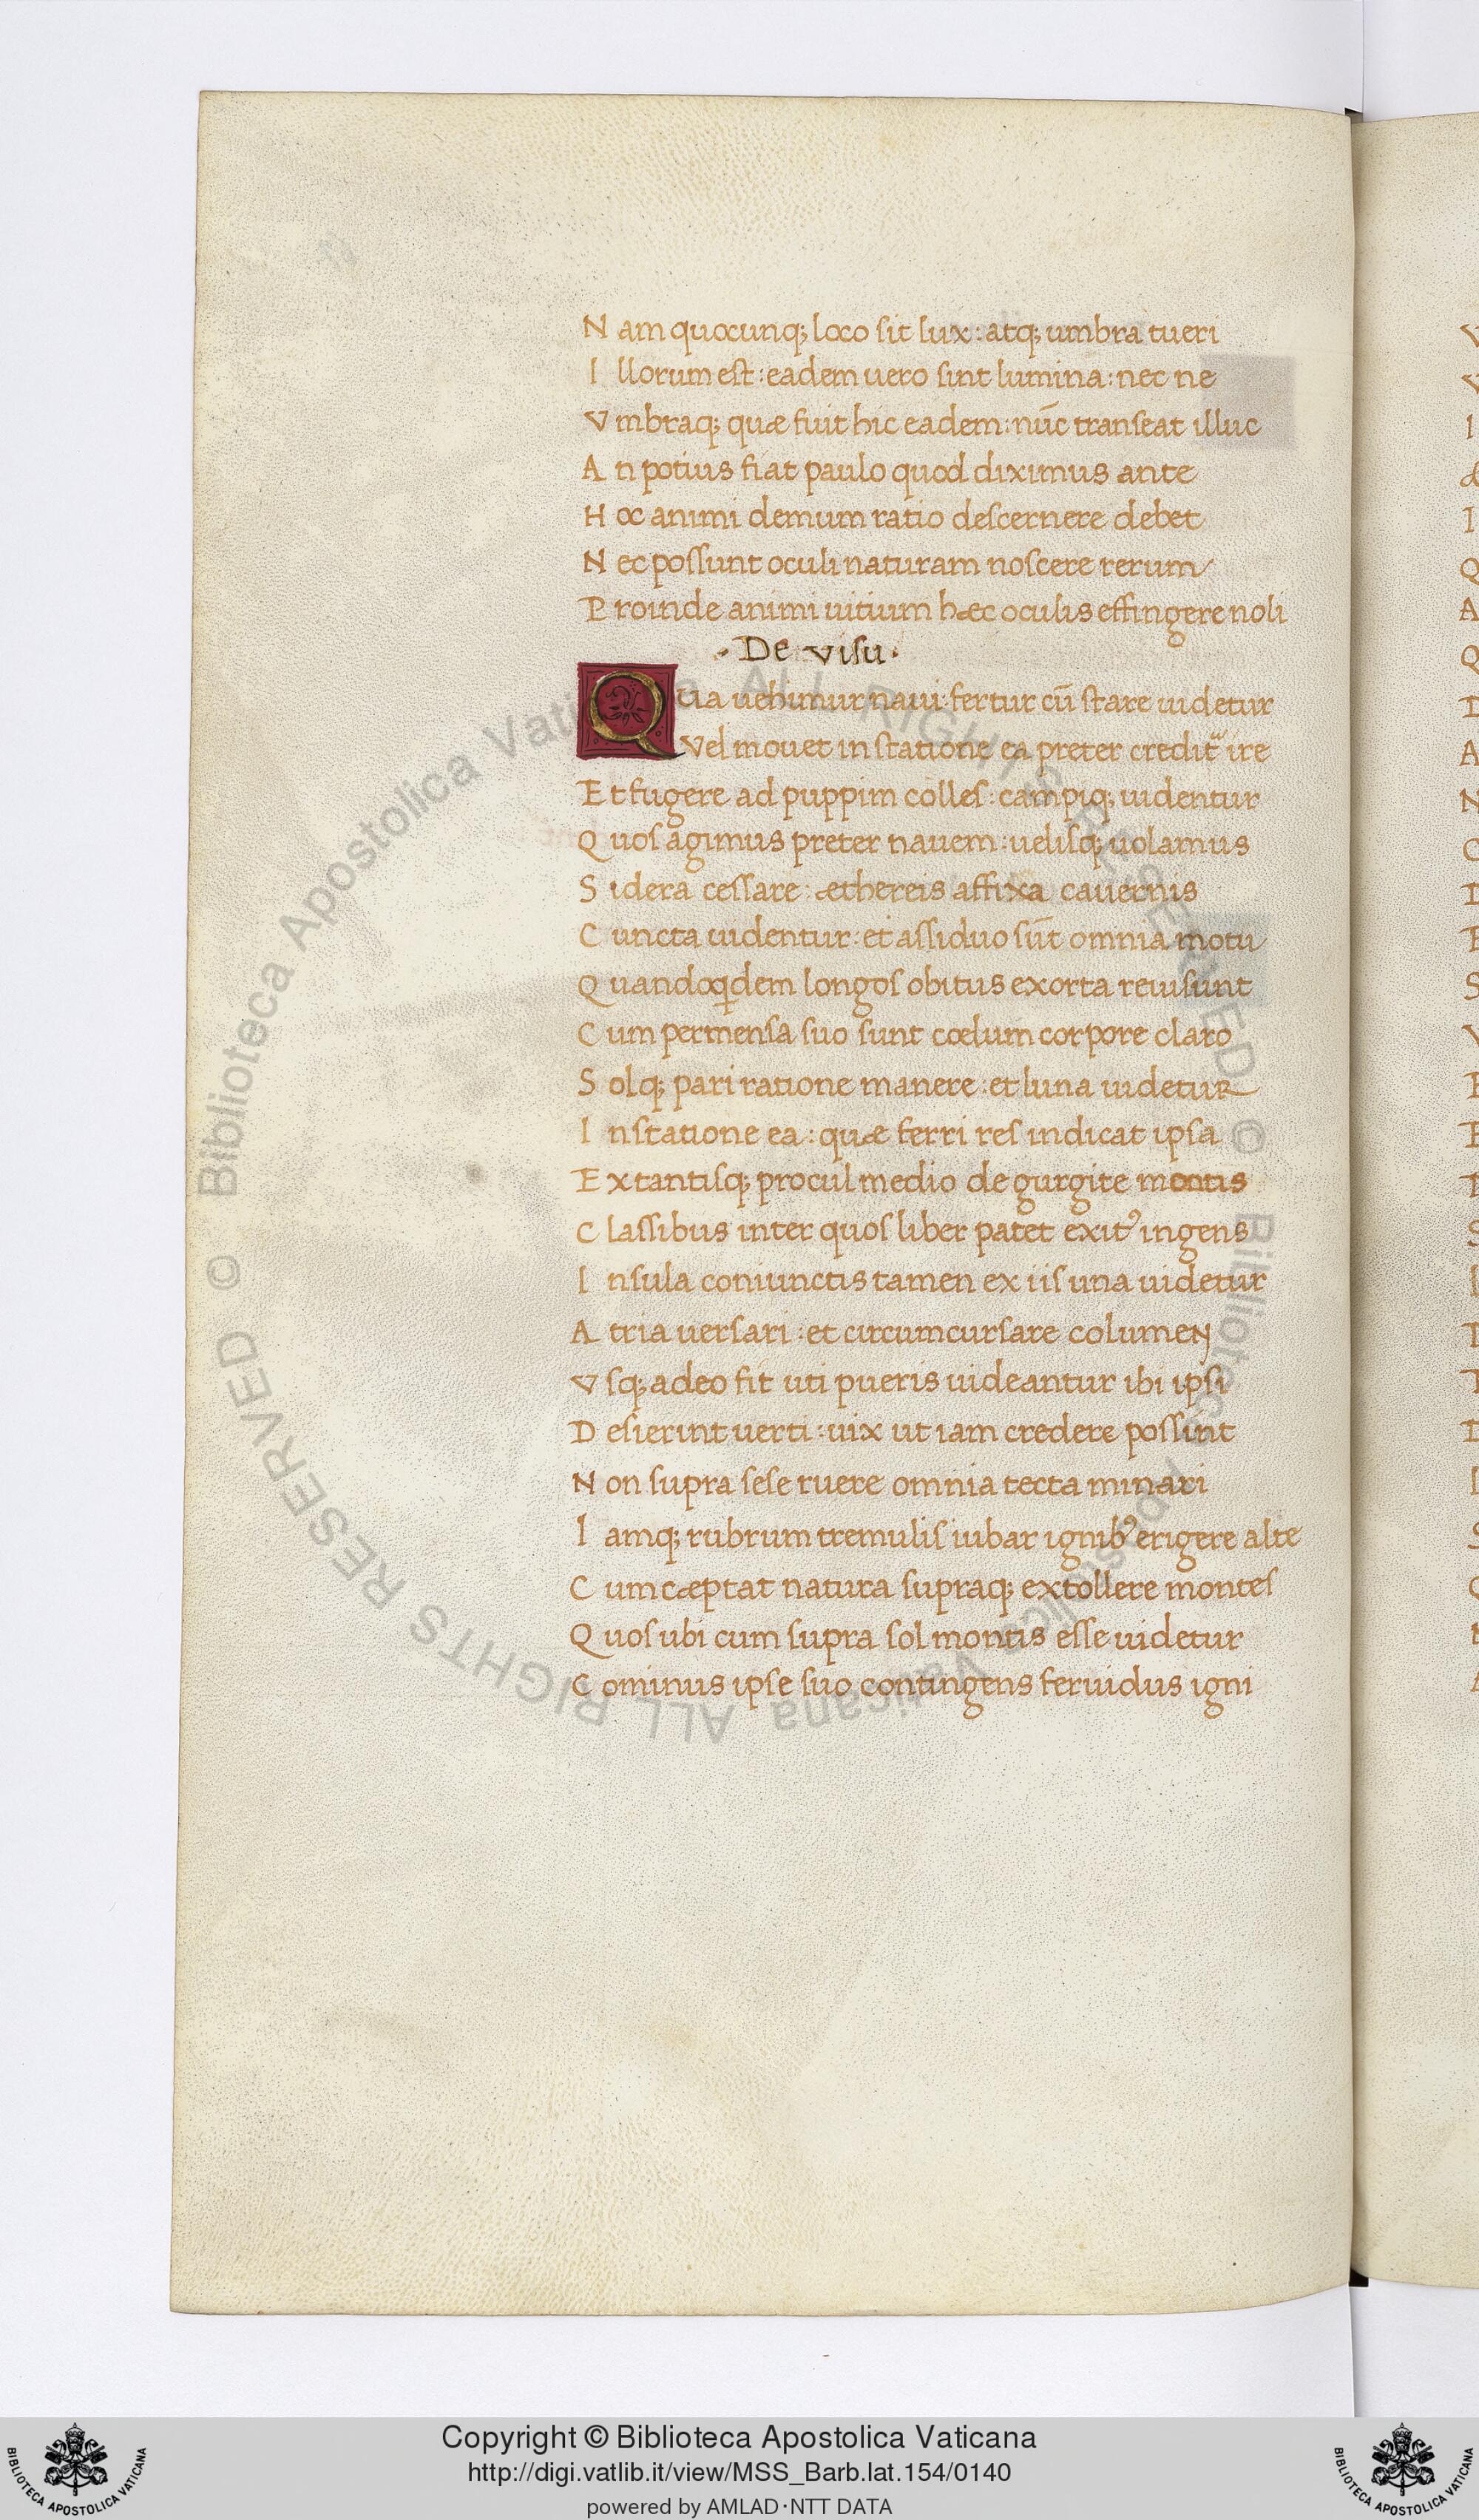 Nam quocunq; loco sit lux: atq; umbra tueri
Illorum est: eadem uero sint lumina: nec ne
Vmbraq; quæ fuit hic eadem: nūc transeat illuc
An potius fiat paulo quod diximus ante
Hoc animi demum ratio descernere debet
Nec possunt oculi naturam noscere rerum
Proinde animi uitium hæc oculis effingere noli
·De visu·
Qua uehimur naui: fertur cū stare uidetur
Vel mouet in statione ea preter credit᷑ ire
Et fugere ad puppim colles: campiq; uidentur
Quos agimus preter nauem: uelisq; uolamus
Sidera cessare: æthereis affixa cauernis
Cuncta uidentur: et assiduo sūt omnia motu
Quandoq̇dem longos obitus exorta reuisunt
Cum permensa suo sunt cœlum corpore claro
Solq; pari ratione manere: et luna uidetur
In statione ea: quæ ferri res indicat ipsa
Extantisq; procul medio de gurgite montis
Classibus inter quos liber patet exitꝰ ingens
Insula coniunctis tamen ex iis una uidetur
Atria uersari: et circumcursare columen
Vsq; adeo fit uti pueris uideantur ibi ipsi
Desierint uerti: uix ut iam credere possint
Non supra sese ruere omnia tecta minari
Iamq; rubrum tremulis iubar ignibꝰ erigere alte
Cum cæptat natura supraq; extollere montes
Quos ubi cum supra sol montis esse uidetur
Cominus ipse suo contingens feruidus igni
© Biblioteca Apostolica Vaticana ALL RIGHTS RESERVED © Biblioteca Apostolica Vaticana ALL RIGHTS RESERVED
Copyright © Biblioteca Apostolica Vaticana
http://digi.vatlib.it/view/MSS_Barb.lat.154/0140
powered by AMLAD·NTT DATA
BIBLIOTECA APOSTOLICA VATICANA
BIBLIOTECA APOSTOLICA VATICANA